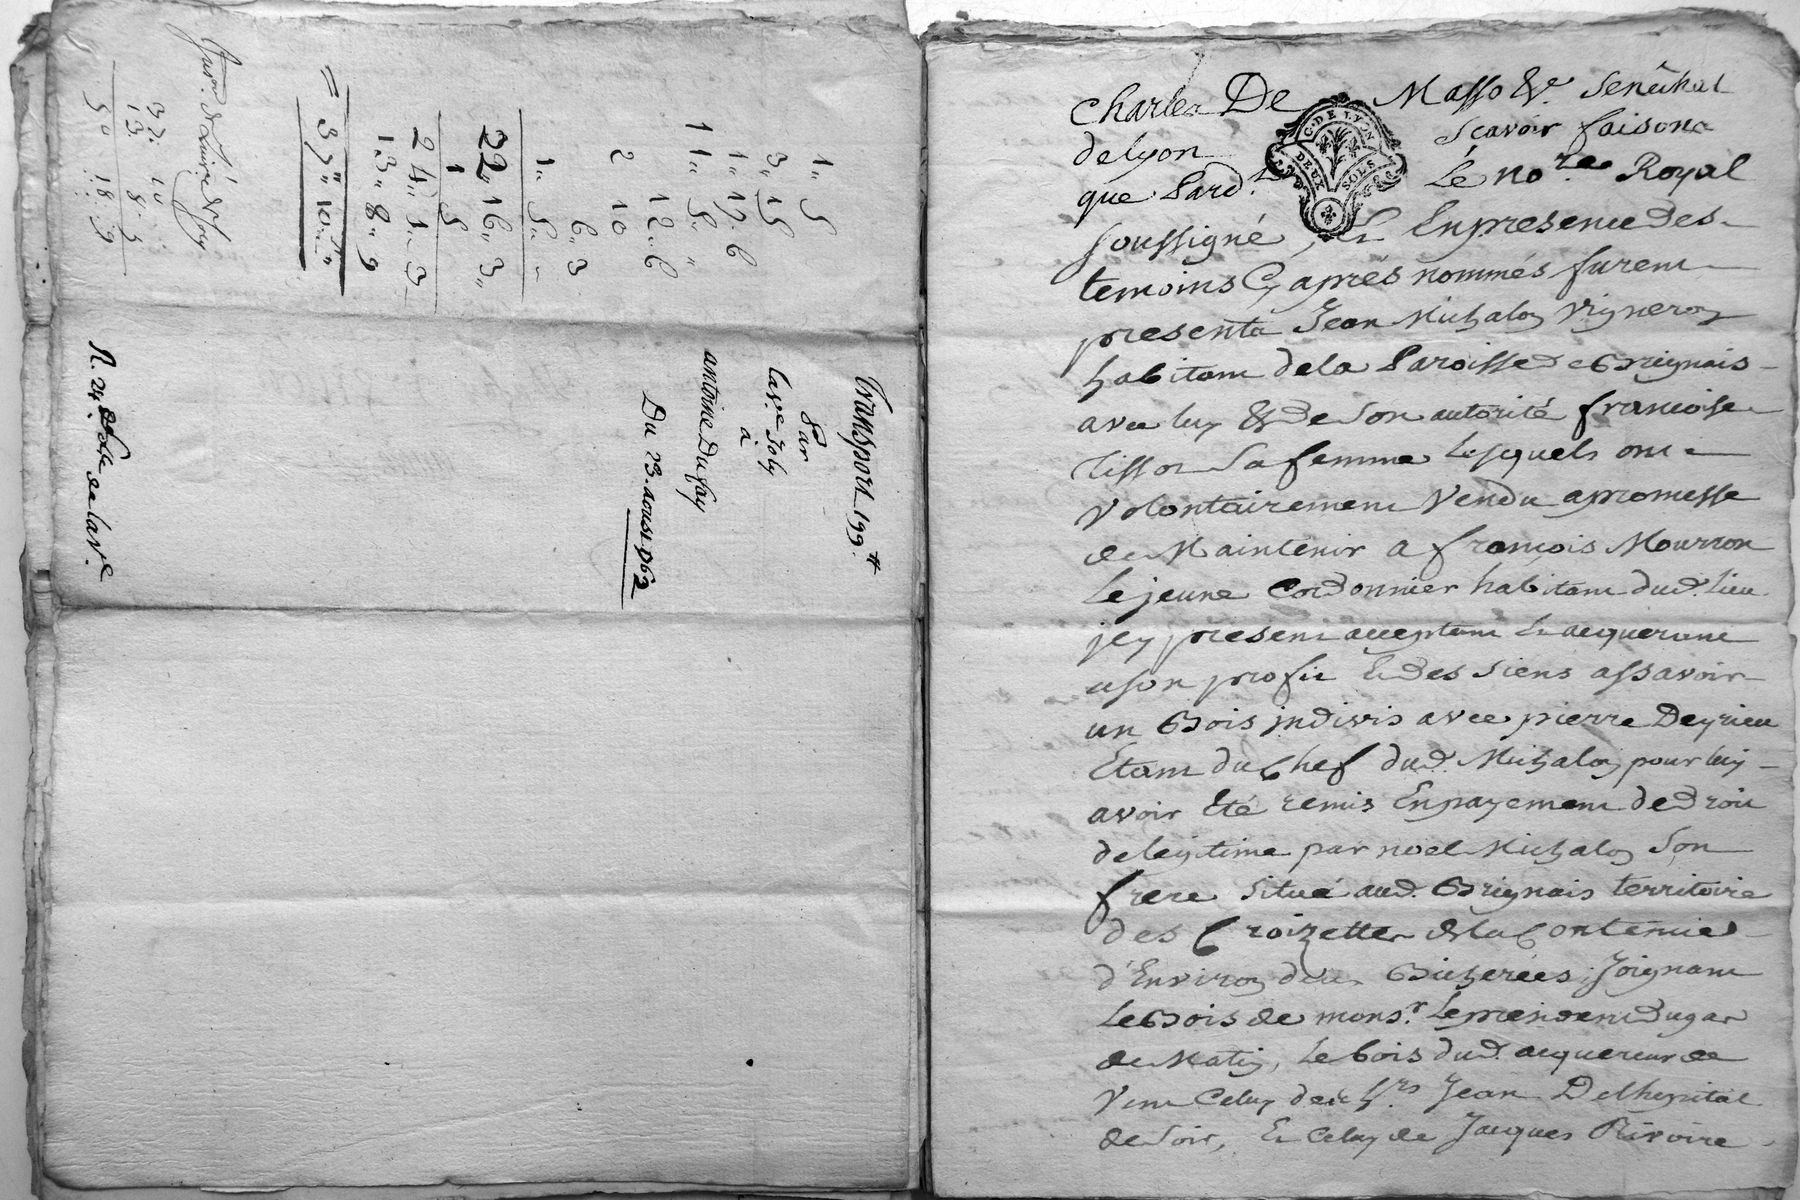 Transport 199.tt
Par
lav.e Joly
à
antoine Dufay
Du 23. aoust 1763
1,, 5
3,, 15
1,, 17. 6
11,, 5,, ,,
12,, 6
2 10
6,, 3
1,, 5,, ,,
22,, 16,, 3,,
1 5
24,, 1,, 3
13,, 8,, 9
= 37,, 10
32: 10
13. 8. 3
5 18. 9
N. 24
de lav.e
Charles De Masso &c. Senéchal
de lyon Scavoir faisons
que Pard.t Le no.re Royal
C. DE LYON
DEUX SOLS
soussigné, Et En presence des
temoins Cy aprés nommés furent
presents Jean Michalon Vigneron
habitant de la Paroisse de Brignais
avec luy & de Son autorité francoise
tissot Sa femme Lesquels ont
volontairement vendu a promesse
de Maintenir a françois Mourron
Le jeune Cordonnier habitant dud. lieu
jcy present acceptant Et acquerant
a son profit Et des siens assavoir
un Bois jndivis avec pierre Deyrieu
Etant du Chef dud. Michalon pour luy
avoir Eté remis En payement de droit
de legitime par noel Michalon Son
frere situé aud. Brignais territoire
des Croizettes de la Contenue
d'Environ deux Bicherées, Joignant
Le Bois de mons.r Le president Dugar
de Matin, Le bois dud. acquereur de
Vent Celuy de s.rs Jean Delhopital
de Soir, Et Celuy de Jacques Rivoire